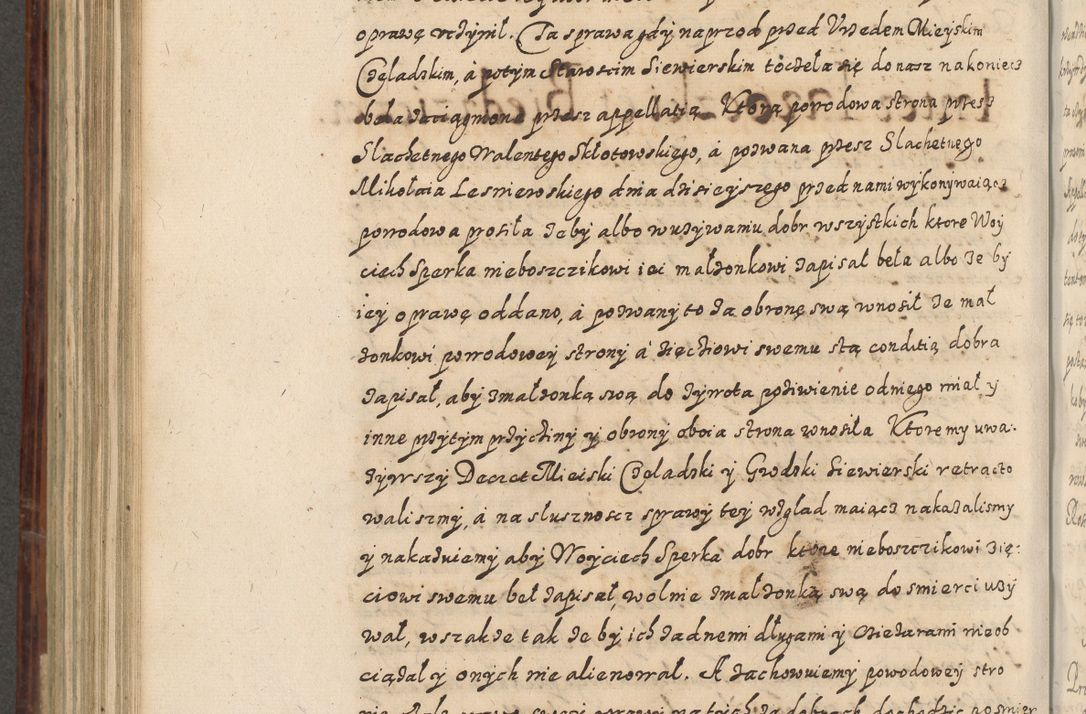 oprawę uczynił. Ta sprawa gdy naprzod przed Urzedem Mieyskim
Czeladzkim, á potym Starościm Siewierskim toczeła się do nasz nakoniecz
beła zaciągniona przesz appellatią. Którą powodowa strona przesz
Slachetnego Walentego Skłotowskiego, á pozwana przesz Slachetnego
Mikołaia Lesniewskiego dnia dzisieyszego przed nami wykonywaiącz
powodowa prosiła żeby albo w używaniu dobr wszystkich ktore Woy
ciech Sperka nieboszczikowi i ei małżonkowi zapisał beła albo że by
iey oprawę oddano, á pozwany to za obronę swą wnosił że mał
żonkowi powodowey strony á zięciowi swemu s tą conditią dobra
zapisał, aby z małżonką swą do żywota pożiwienie od niego miał y
inne przytym przyczyny y obrony oboia strona wnosiła Ktore my uwa-
żywszy Decret Mieiski Czeladzki y Grodzki Siewierski retracto
waliszmy, á na slusznoscz sprawy tey wzglad maiącz nakazalismy
y nakazuiemy aby Woyciech Sperka dobr ktore nieboszczikowi zię:
ciowi swemu beł zapisał, wolnie z małżonką swą do smierci uży
wał, wszakże tak że by ich żadnemi długami y ciężarami nieob
ciążał y onych nie alienował. A zachowuiemy powodowey stro